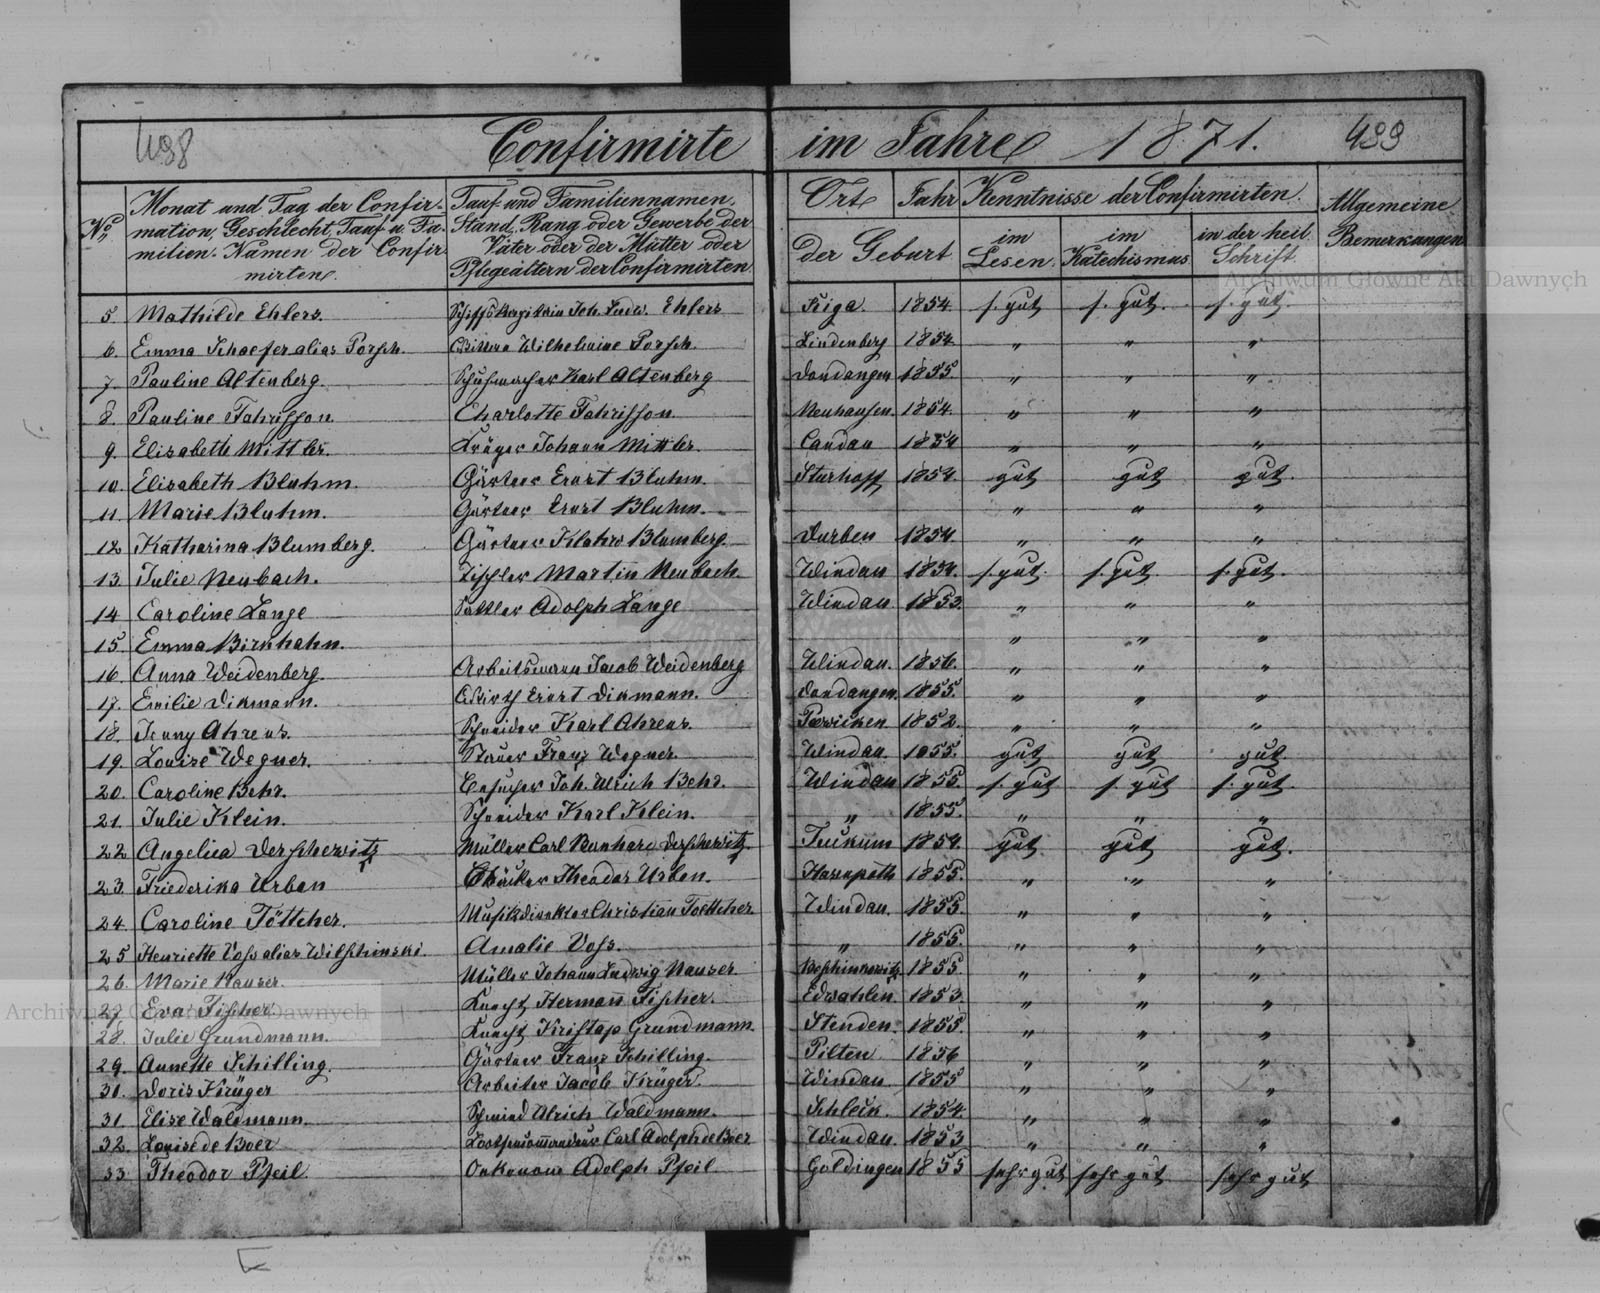 498 Confirmirte im Jahre 1871. 499
No. Monat und Tag der Confir- Tauf und Familiennamen, Ort Jahr Kenntnisse der Confirmirten. Allgemeine
mation, Geschlecht, Tauf u. Fa- Stand, Rang oder Gewerbe der der Geburt im im in der heil Bemerkungen
milien-Namen der Confir- Väter oder der Mütter oder Lesen. Katechismus Schrift.
mirten. Pflegeältern der Confirmirten
5. Mathilde Ehlers. Joh. Ludw. Ehlers Riga. 1854. s. gut s. gut. s. gut.
6. Emma Schaefer alias Porsch. Wilhelmine Porsch. Lindenberg 1854. " " "
7. Pauline Altenberg. Schuhmacher Karl Altenberg Dondangen 1855. " " "
8. Pauline Fahrisson. Charlotte Fahrisson. Neuhausen. 1854. " " "
9. Elisabeth Mittler. Krüger Johann Mittler. Candau 1854 " " "
10. Elisabeth Bluhm. Gärtner Ernst Bluhm. 1854. gut gut gut.
11. Marie Bluhm. Gärtner Ernst Bluhm. " " "
12 Katharina Blumberg. Gärtner Blumberg. Durben 1854 " " "
13. Julie Neubach. Tischler Martin Neubach. Windau 1854. s. gut. s. gut. s. gut.
14 Caroline Lange Sattler Adolph Lange Windau. 1853. " " "
15. Emma Birkhahn. " " "
16. Anna Weidenberg. Arbeitsmann Jacob Weidenberg Windau. 1856. " " "
17. Emilie Dikmann. Wirth Ernst Dikmann. Dondangen. 1855. " " "
18. Jenny Ahrens. Schneider Karl Ahrens. 1852. " " "
19. Louise Wegner. Stauer Franz Wegner. Windau. 1855. gut gut gut.
20. Caroline Behr. Joh. Ulrich Behr. Windau 1855. s. gut s. gut s. gut.
21. Julie Klein. Schneider Karl Klein. " 1855. " " "
22 Angelica Derschewitz Müller Carl Derschewitz Tuckum 1854. gut gut gut.
23. Friederika Urban Theodor Urban. Hasenpoth 1855. " " "
24. Caroline Töttcher. Musikdirektor Christian Toettcher Windau. 1855. " " "
25 Henriette Voss alias Wilschinski. Amalie Voss. " 1855. " " "
26. Marie Nauser. Müller Johann Ludwig Nauser 1855. " " "
27. Eva Fischer. Knecht Hermann Fischer. Edwahlen. 1853. " " "
28. Julie Grundmann. Knecht Kristap Grundmann. Stenden. 1855. " " "
29. Annette Schilling. Gärtner Franz Schilling. Pilten 1856 " " "
30. Doris Krüger Arbeiter Jacob Krüger. Windau 1855 " " "
31. Elise Waldmann. Schmied Ulrich Waldmann. Schleck. 1854. " " "
32. Louise de Boer Carl Adolph de Boer Windau. 1853 " " "
33 Theodor Pfeil. Oekonom Adolph Pfeil Goldingen 1855 sehr gut sehr gut sehr gut
Archiwum Główne Akt Dawnych
Archiwum Główne Akt Dawnych